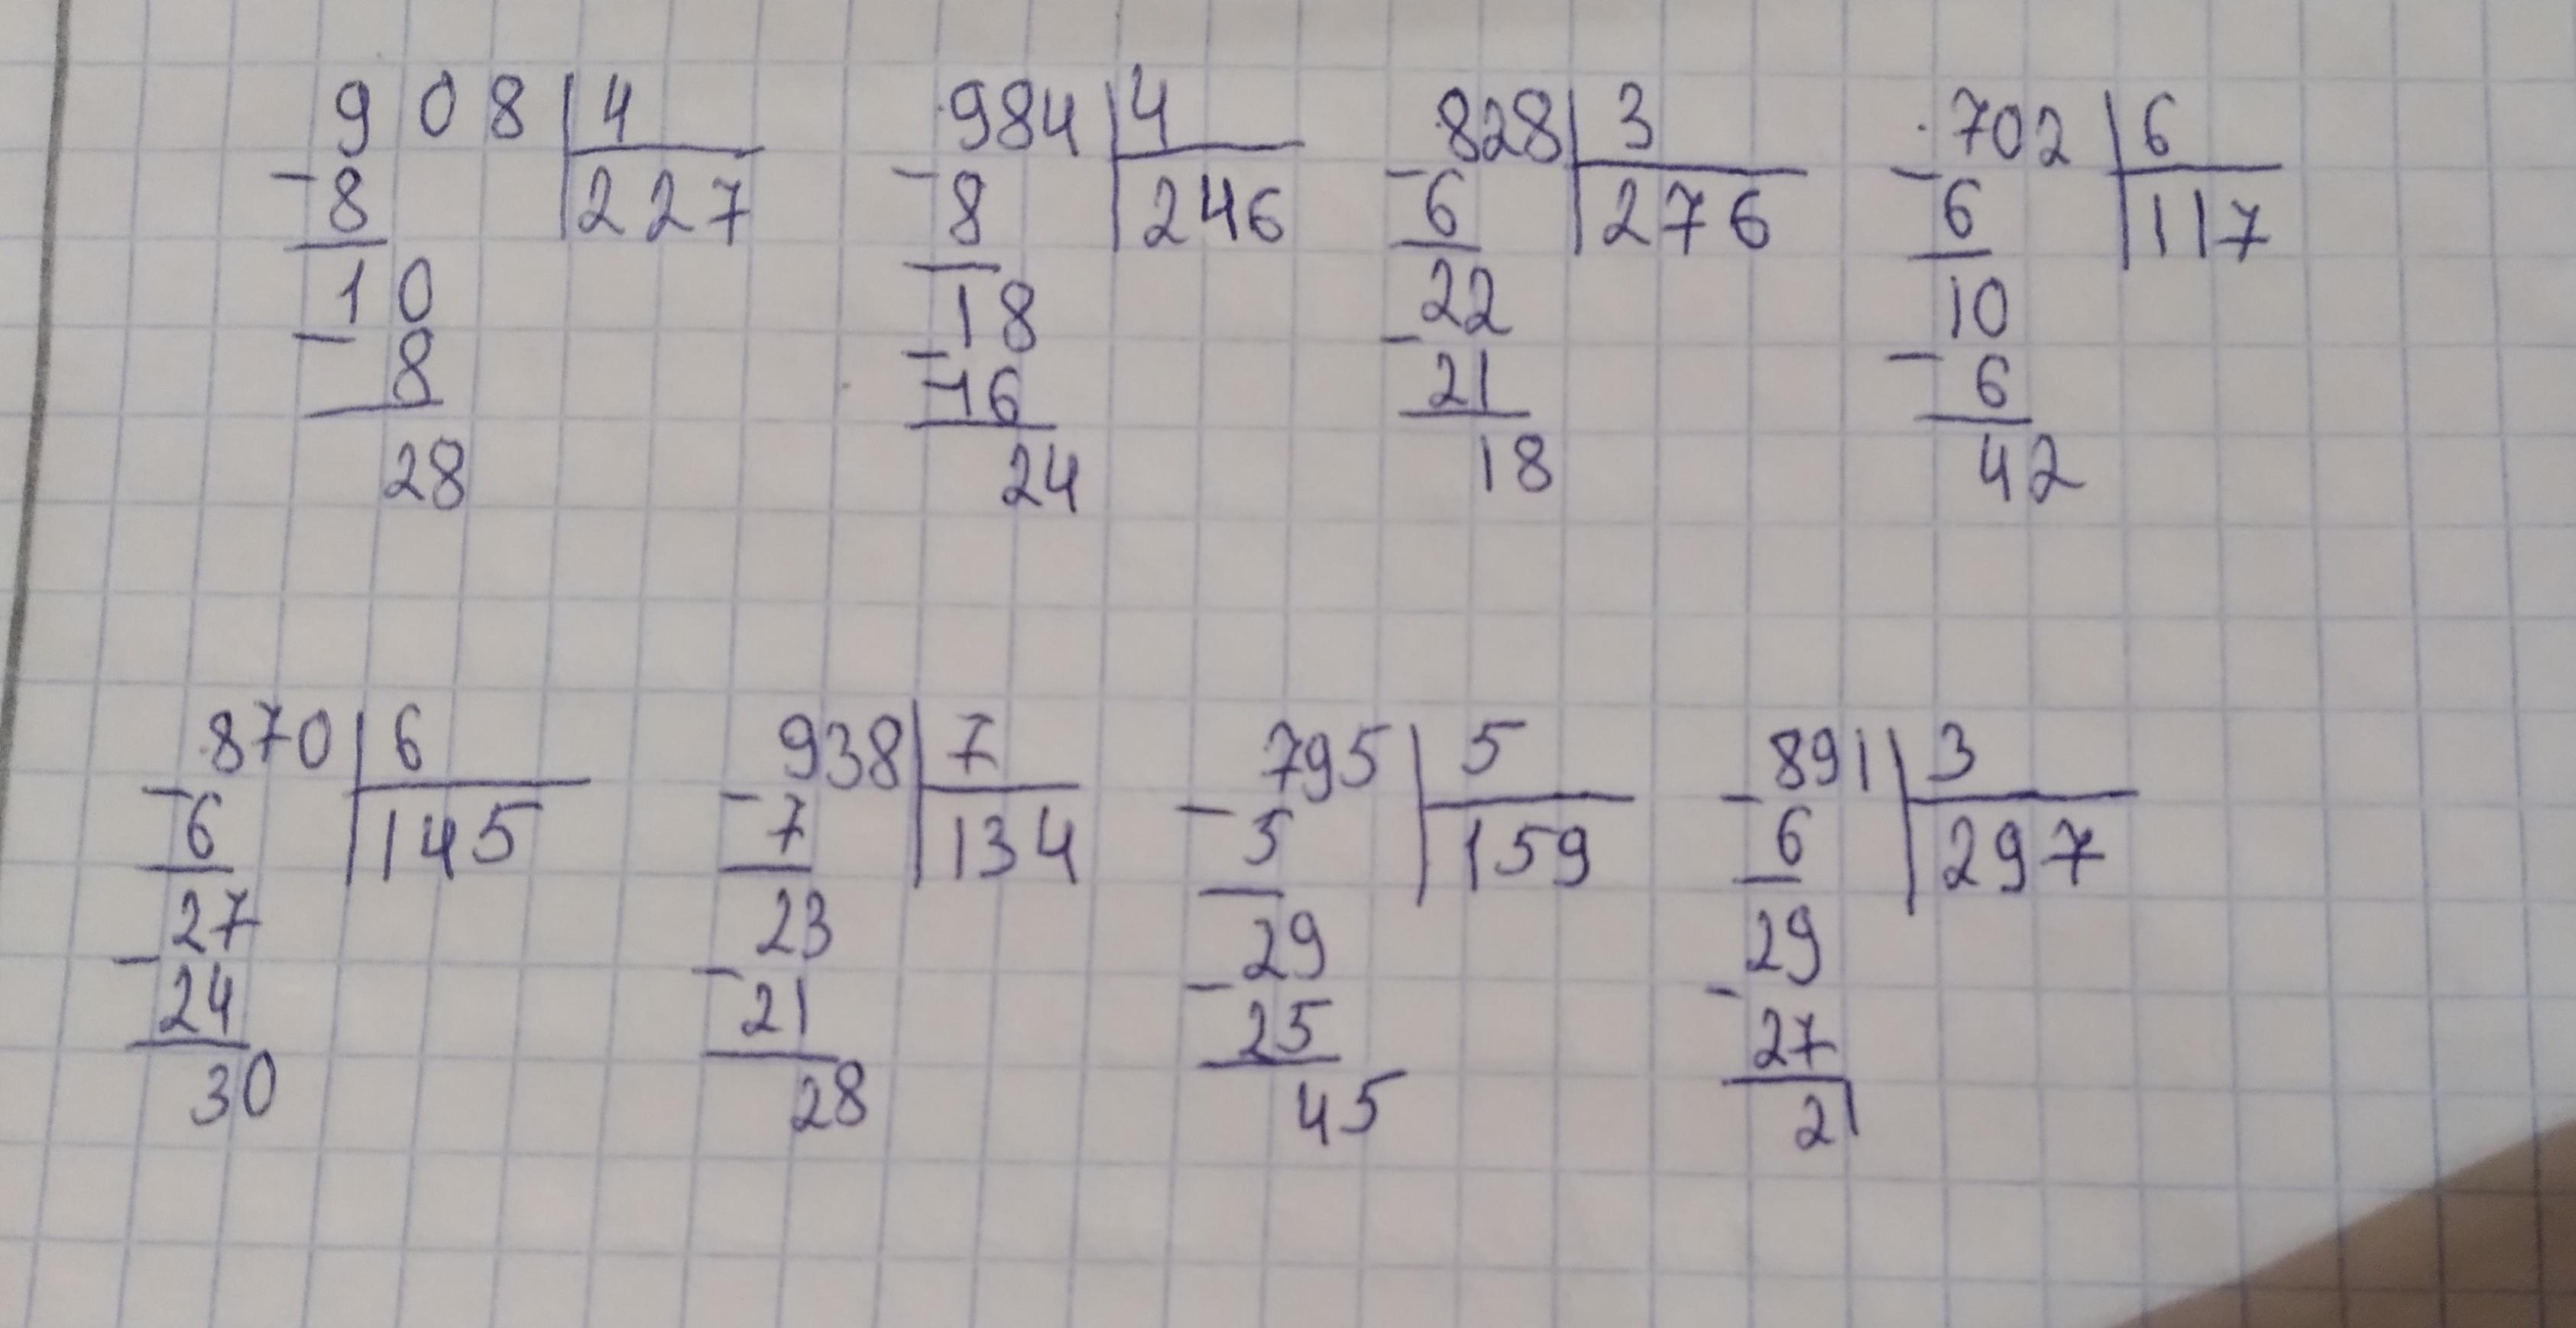 908 4 984 4 828 3 702 6
-8 227 -8 246 -6 276 -6 117
10 18 22 10
-8 -16 -21 -6
28 24 18 42
870 6 938 7 795 5 891 3
-6 145 -7 134 -5 159 -6 297
27 23 29 29
-24 -21 -25 -27
30 28 45 21